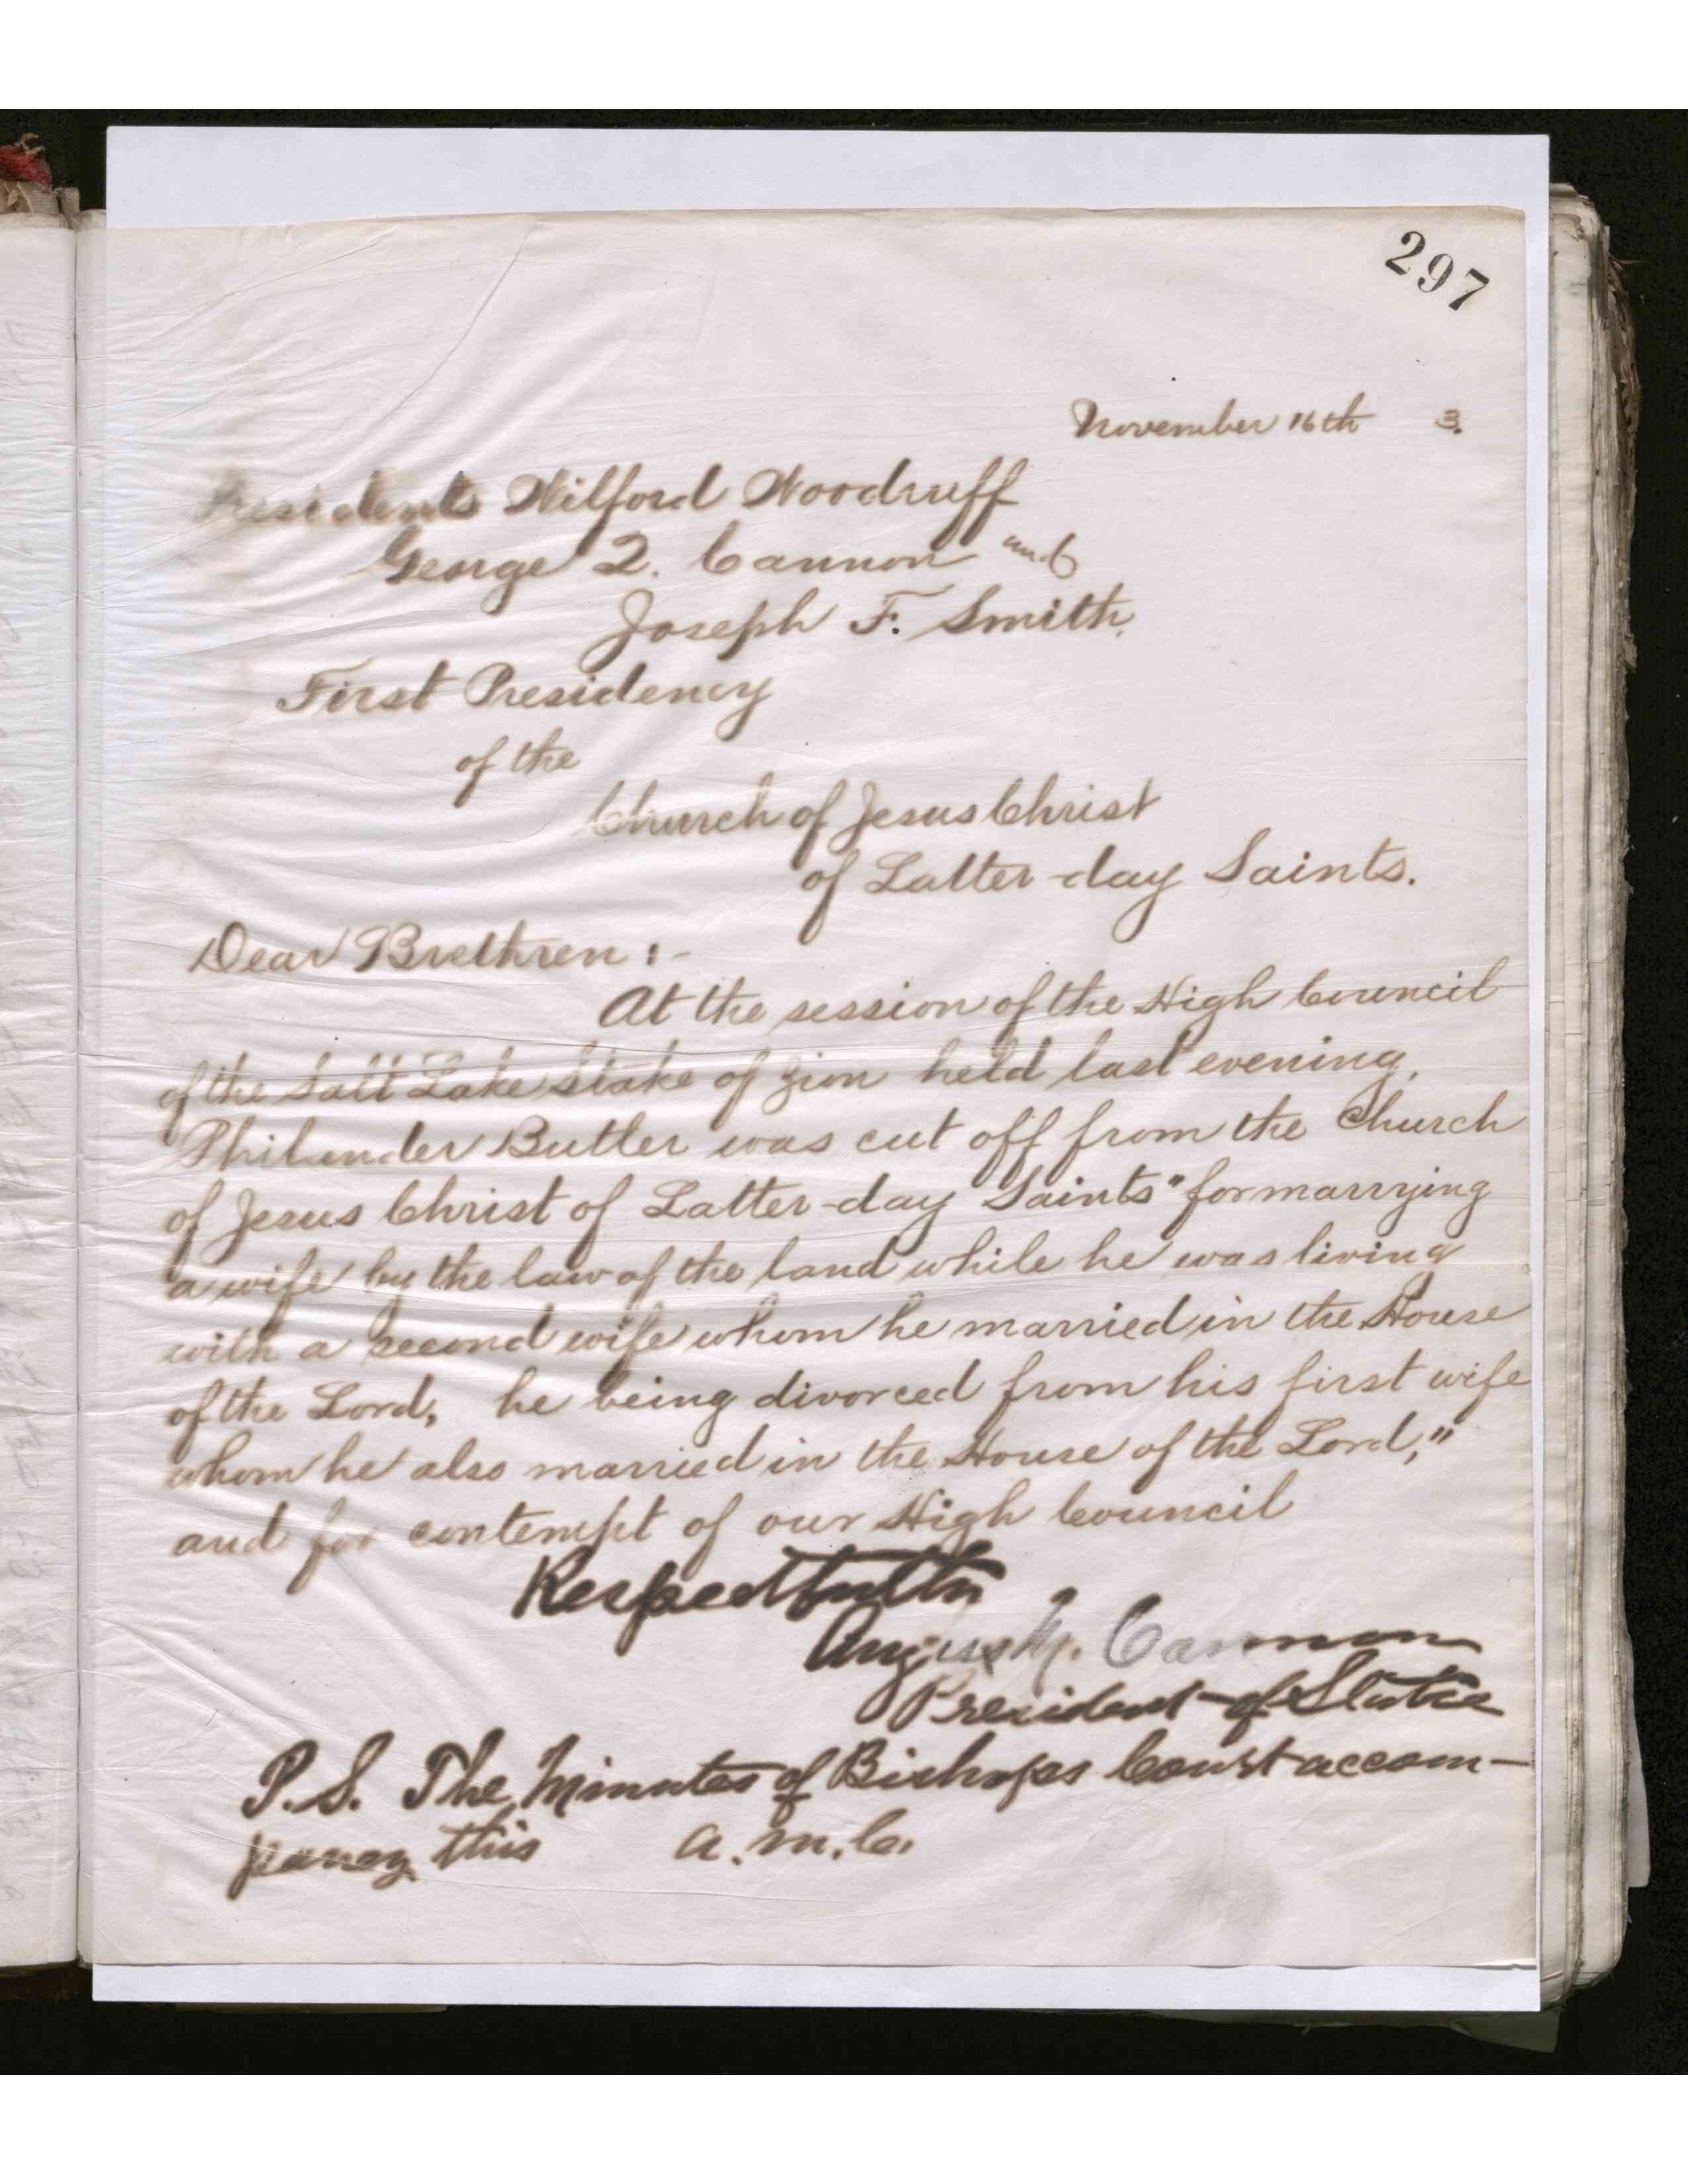 297
November 16th 3.
Presidents Wilford Woodruff
George Q. Cannon and
Joseph F. Smith.
First Presidency
of the
Church of Jesus Christ
of Latter-day Saints.
Dear Brethren:-
At the session of the High Council
of the Salt Lake Stake of Zion held last evening,
Philander Butler was cut off from the Church
of Jesus Christ of Latter-day Saints "for marrying
a wife by the law of the land while he was living
with a second wife whom he married in the House
of the Lord, he being divorced from his first wife
whom he also married in the House of the Lord,"
and for contempt of our High Council
Respectfully
Angus M. Cannon
President of Stake
P.S. The Minutes of Bishops Court accom-
pany this a.m.C.